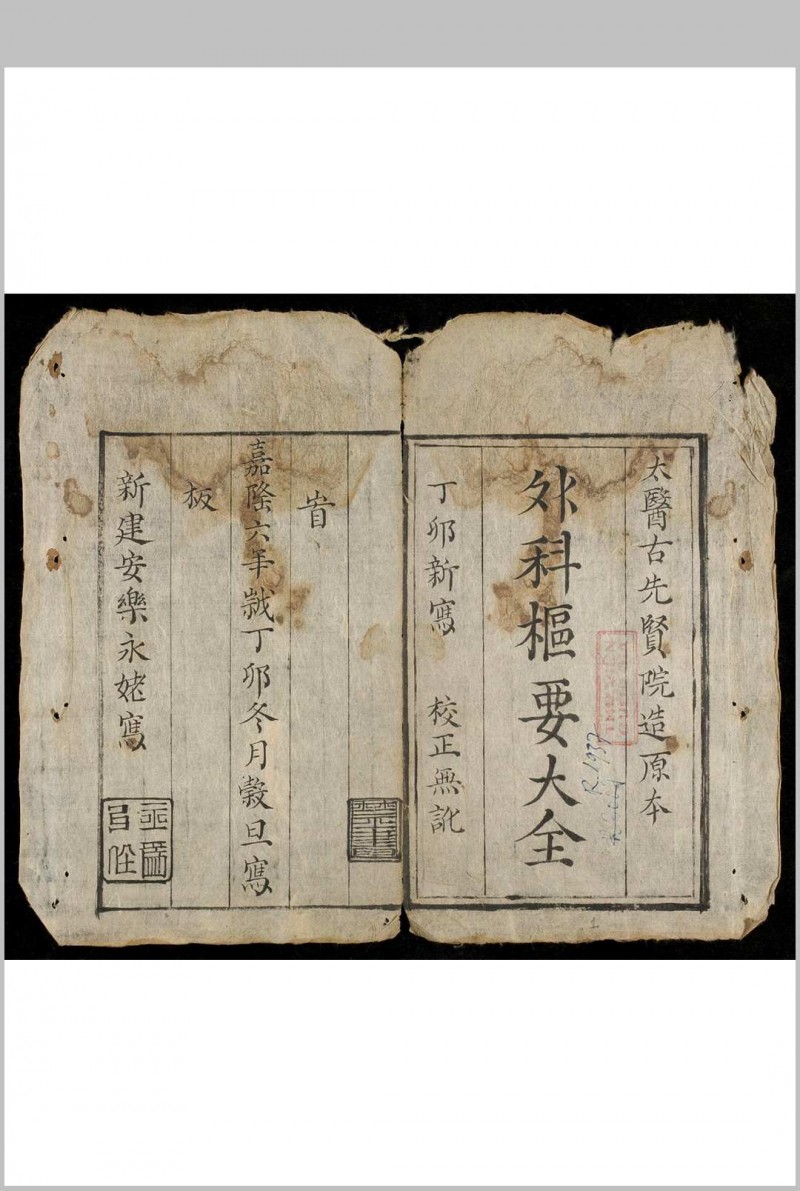 太醫古先賢院造原本
外科樞要大全
丁卯新寫 校正無訛
旹
嘉隆六年歲丁卯冬月穀旦寫
板
新建安樂永姥寫
R.1937
1